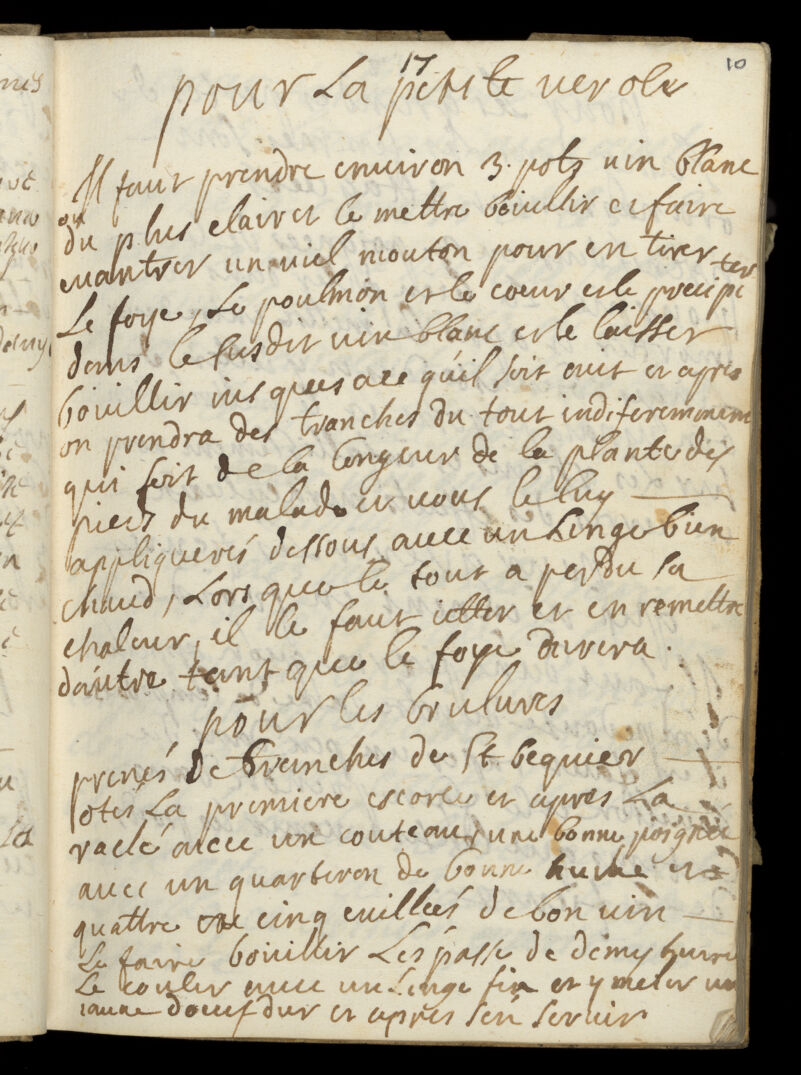 17
10
pour La petite verole
Il faut prendre environ 3. potz vin blanc
ou du plus clair et le mettre bouillir et faire
evantrer un viel mouton pour en tirer
Le foye, Le poulmon et le coeur et le precipiter
dans le susdit vin blanc et le laisser
bouillir jusques a ce qu'il soit cuit et apres
on prendra des tranches du tout indiferemment
qui soit de la longeur de la plante des
pieds du malade et vous le luy
appliquerés dessous avec un Linge bien
chaud, Lors que le tout a perdu sa
chaleur, il le faut jetter et en remettre
d'autre tant que le foye durera.
pour les brulures
prenés de branches de
otés La premiere escorce et apres La
raclé avec un couteau, une bonne poignée
avec un quarteron de bonne huile et
quattre ou cinq cuillieés de bon vin
Le faire bouillir Lespasse de demy heure
Le couler avec un Linge fin et y meler un
jaune doeuf dur et apres sen servir